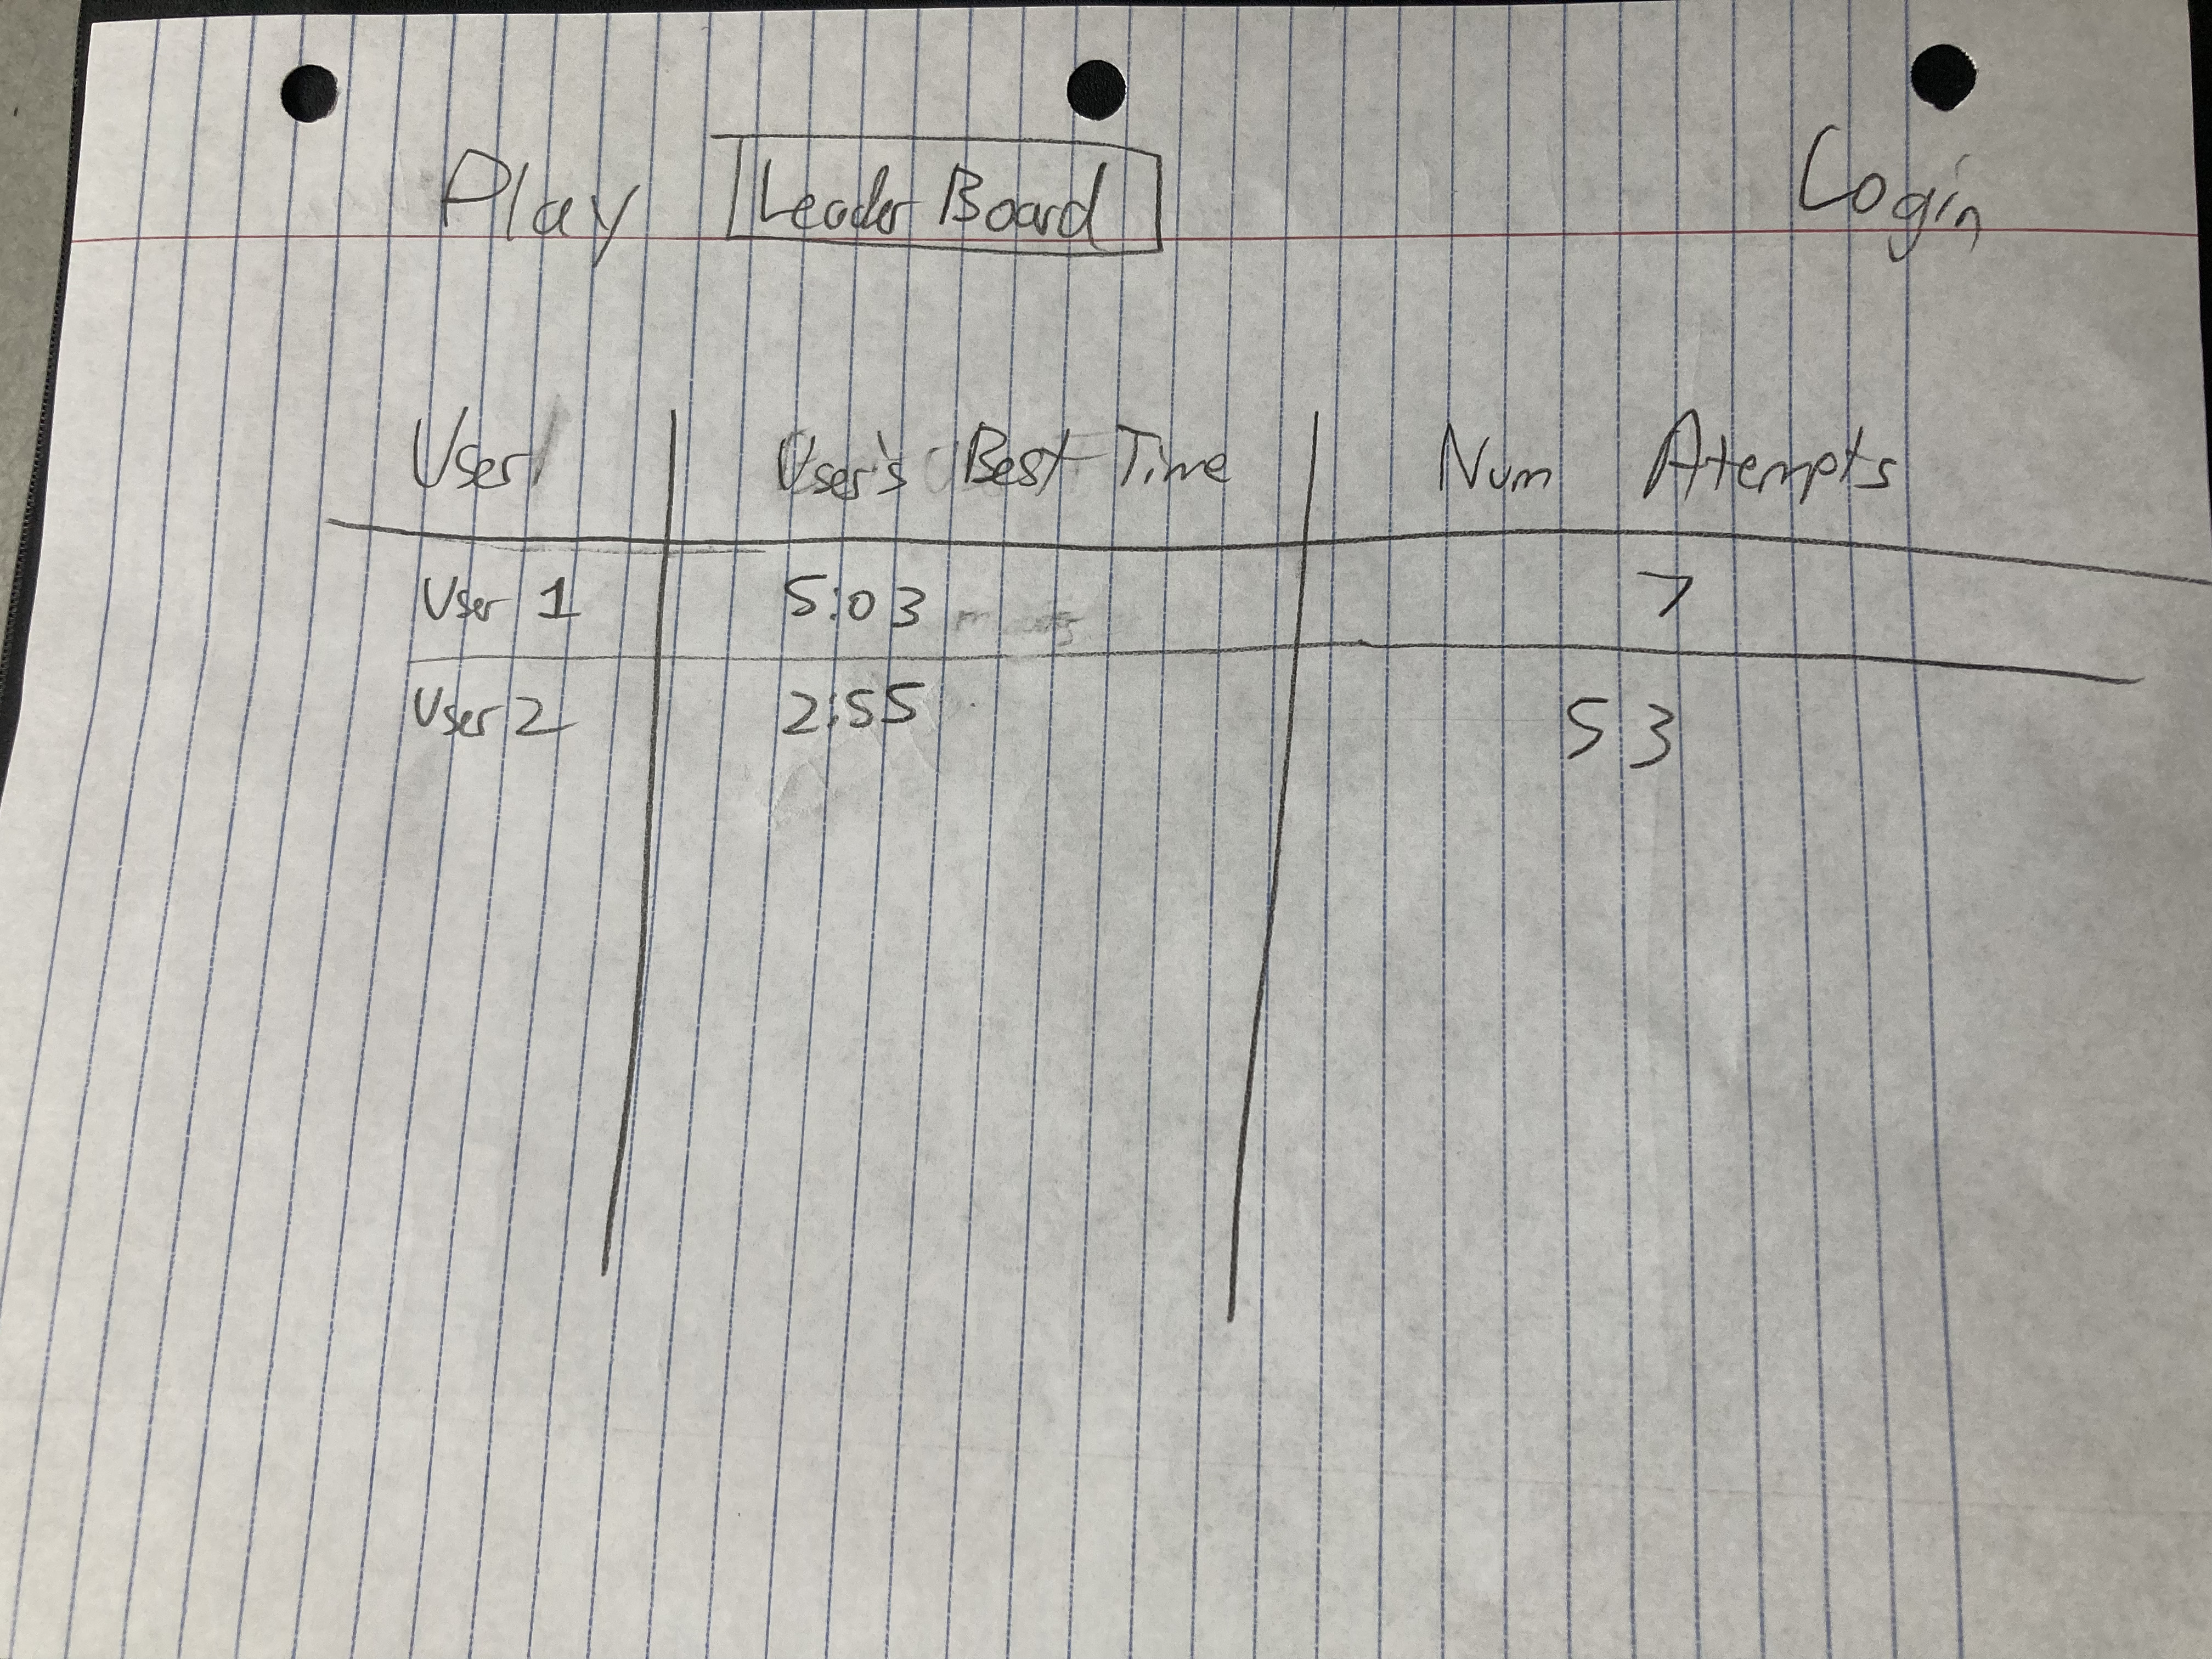 Play Leader Board Login
User User's Best Time Num Atempts
User 1 5:03 7
User 2 2:55 53